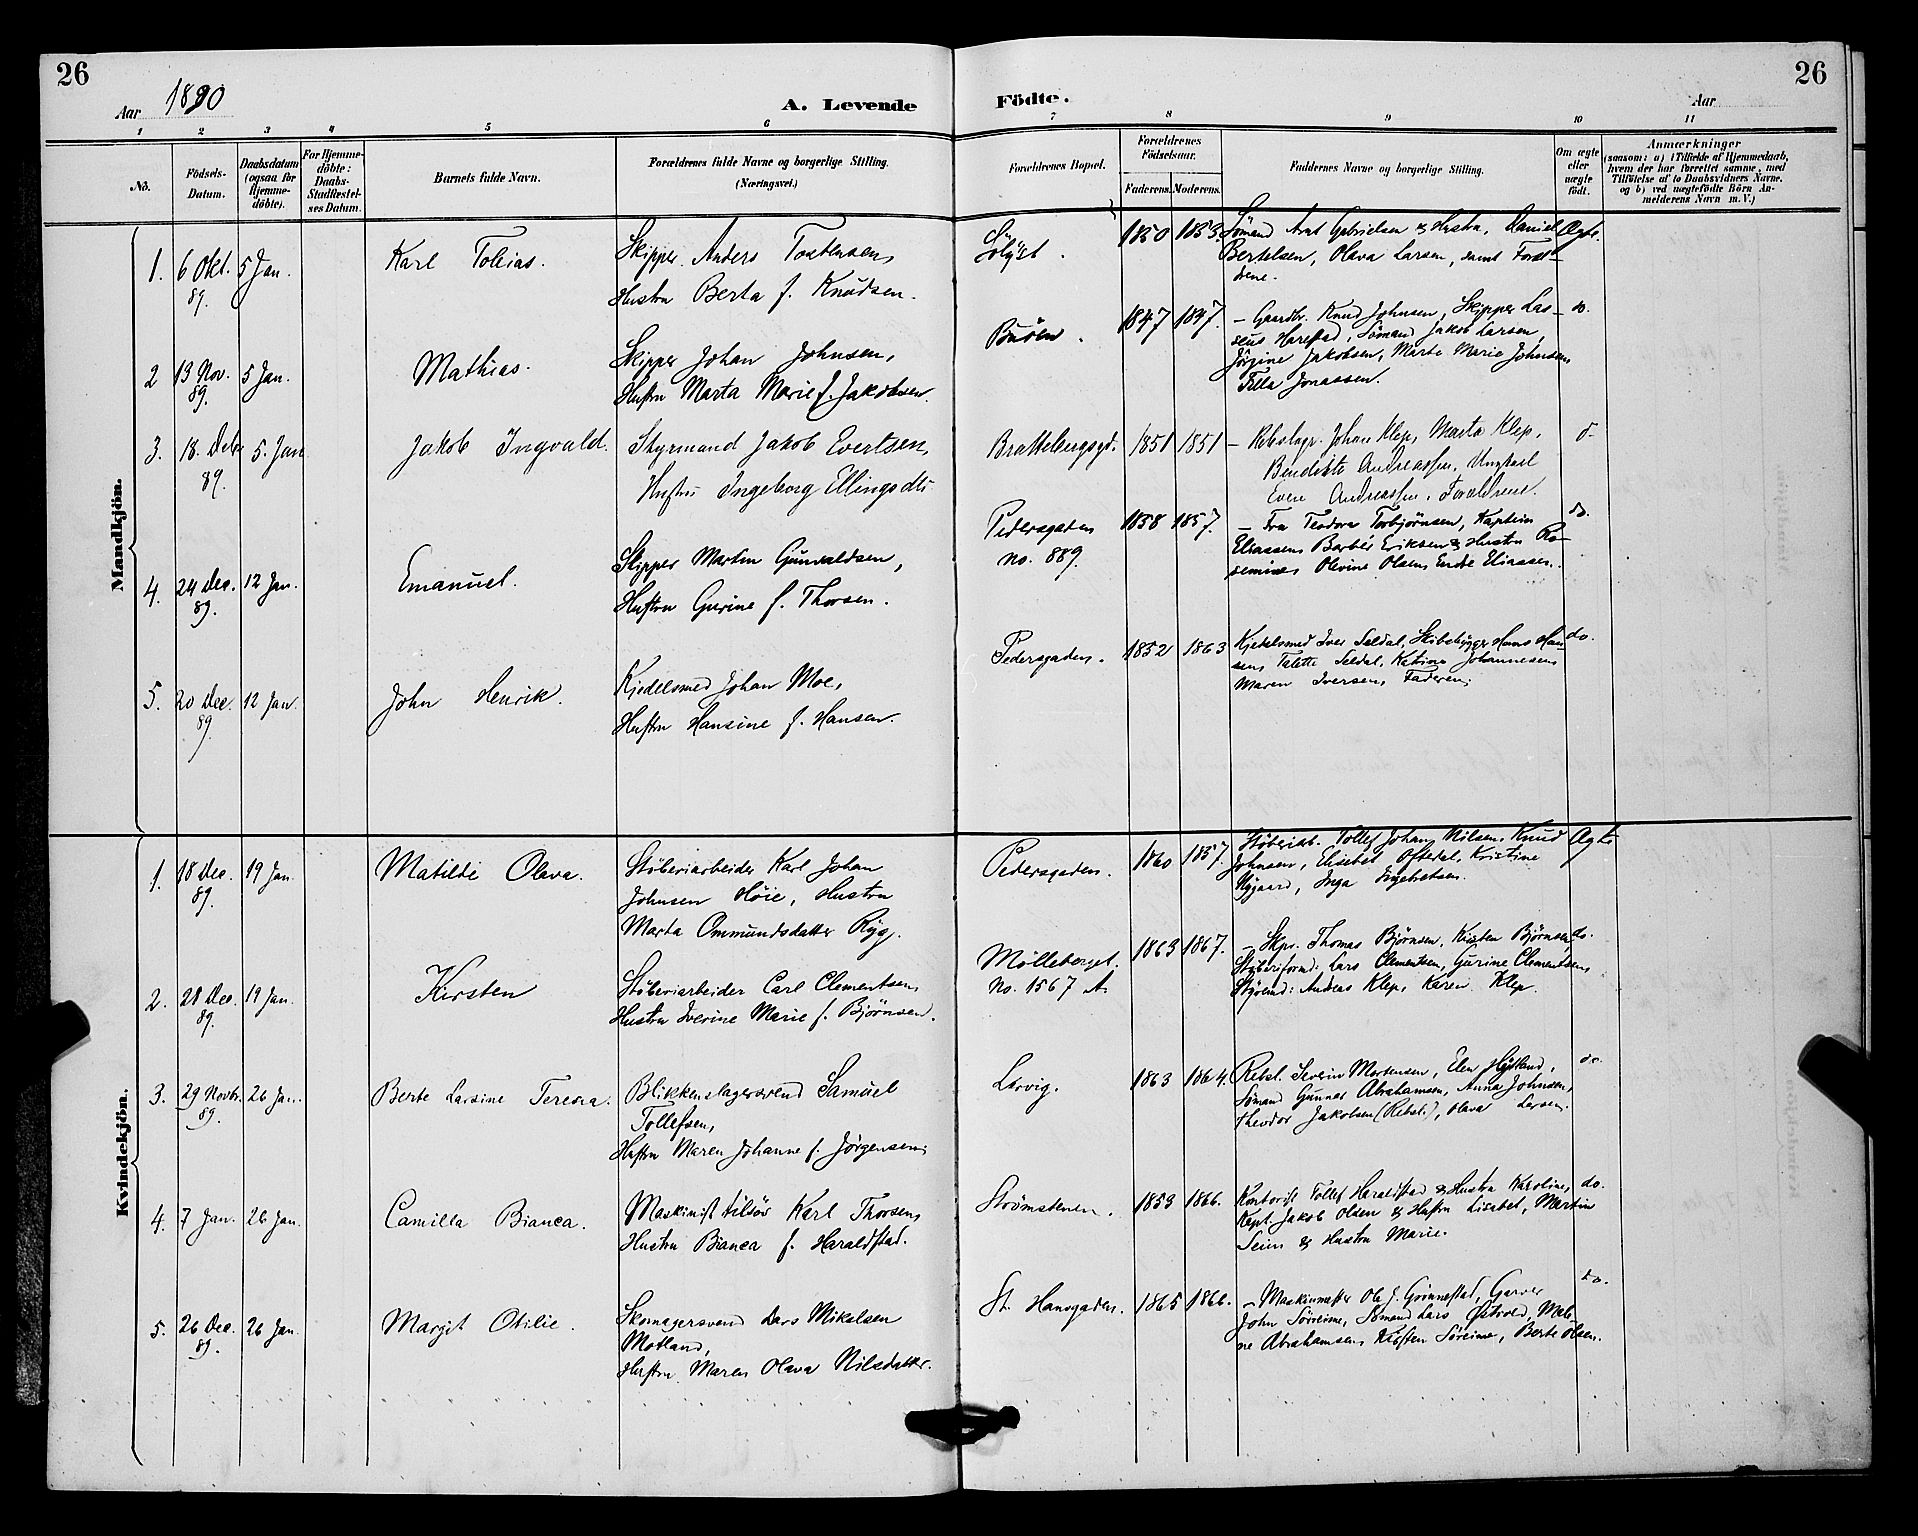 26
26
Aar 1890
A. Levende
Födte.
Aar
1 2 3 4 5 6 7 8 9 10 11
No.
Födsels-
Datum.
Daabsdatum
(ogsaa for
Hjemme-
döbte).
For Hjemme-
döbte:
Daabs-
Stadfæstel-
ses Datum.
Barnets fulde Navn.
Forældrenes fulde Navne og borgerlige Stilling.
(Næringsvei.)
Forældrenes Bopæl.
Forældrenes
Födselsaar.
Faderens. Moderens.
Faddernes Navne og borgerlige Stilling.
Om ægte
eller
uægte
födt.
Anmærkninger
(saasom: a) i Tilfælde af Hjemmedaab,
hvem der har forrettet samme, med
Tilföielse af to Daabsvidners Navne.
og b) ved uægtefödte Börn An-
melderens Navn m. V.)
Mandkjön.
1. 6 Okt. 89. 5 Jan. Karl Tobias.
Skipper Anders Tostensen,
Hustru Berta f. Knudsen.
Sølyst. 1850 1853.
Sømand Arnt Gabrielsen & Hustru, Daniel
Bertelsen, Olava Larsen, samt Foræl-
drene.
Ægte.
2 13 Nov. 89. 5 Jan. Mathias.
Skipper Johan Johnsen,
Hustru Marta Marie f. Jakobsen.
Buøen. 1847 1847.
– Gaardbr. Knud Johnsen, Skipper Las-
seus Harestad, Sømand Jakob Larsen,
Jörgine Jakobsen, Marte Marie Johnsen,
Tilla Jonassen.
do.
3. 18. Debr 89. 5. Jan Jakob Ingvald.
Styrmand Jakob Evertsen,
Hustru Ingeborg Ellingsdtr
Brattebergsgd. 1851 1851
– Rebslagr. Johan Klep, Marta Klep,
Bendikte Andreassen, Ungkarl
Even Andreassen, Forældrene.
d–
4. 24 Dec. 89. 12 Jan. Emanuel.
Skipper Martin Gunvaldsen,
Hustru Gurine f. Thorsen.
Pedersgaden
no. 889.
1858 1857.
– Fru Teodora Torbjørnsen, Kaptein
Eliassen, Barbér Eriksen & Hustru Ro-
semine, Olevine Olsen, Endre Eliassen.
do.
5. 20 Dec. 89 12 Jan. John Henrik.
Kjedelsmed Johan Moe,
Hustru Hansine f. Hansen.
Pedersgaden. 1852 1863
Kjedelsmed Iver Seldal, Skibsbygger Hans Han-
sen, Talette Seldal, Katrine Johannesen
Maren Iversen, Faderen.
do.
Kvindekjön.
1. 18 Dec. 89. 19 Jan. Matilde Olava.
Støberiarbeider Karl Johan
Johnsen Høie, Hustru
Marta Ommundsdatter Rygg.
Pedersgaden. 1860 1857.
Støberiarb. Tollef Johan Nilsen, Knud
Johnsen, Elisabet Oftedal, Kristine
Nygaard, Inga Ingebretsen.
Ægte
2. 28 Dec. 89. 19 Jan. Kirsten
Støberiarbeider Carl Clementsen,
Hustru Iverine Marie f. Bjørnsen.
Mølleberget.
No. 1567 A.
1863 1867.
– Skpr. Thomas Bjørnsen, Kirsten Bjørnsen,
Støberiformd. Lars Clementsen, Gurine Clementsen,
Styrmd: Andreas Klep, Karen Klep.
do.
3. 29 Novbr. 89. 26 Jan. Berte Larsine Teresia.
Blikkenslagersvend Samuel
Tollefsen,
Hustru Maren Johanne f. Jørgensen.
Lervig. 1863 1864.
Rebsl. Severin Mortensen, Elen Høiland,
Sømand Gunnar Abrahamsen, Anna Johnsen,
Theodor Jakobsen (Rebsl.), Olava Larsen.
do.
4. 7 Jan. 26 Jan. Camilla Bianca.
Maskinist tilsös Karl Thorsen,
Hustru Bianca f. Haraldstad.
Strømstenen. 1859 1866.
Kontorist Tollef Haraldstad & Hustru Karoline,
Kapt. Jakob Olsen & Hustru Lisabet, Martin
Seim & Hustru Marie.
do.
5. 26 Dec. 89. 26 Jan. Margit Otilie.
Skomagersvend Lars Mikalsen
Motland,
Hustru Maren Olava Nilsdatter.
St. Hansgaden. 1865 1866.
– Maskinmester Ole J. Grønnestad, Garver
John Sørreime, Sømand Lars Østvold, Male-
ne Abrahamsen, Kirsten Søreime, Berte Olsen.
do.